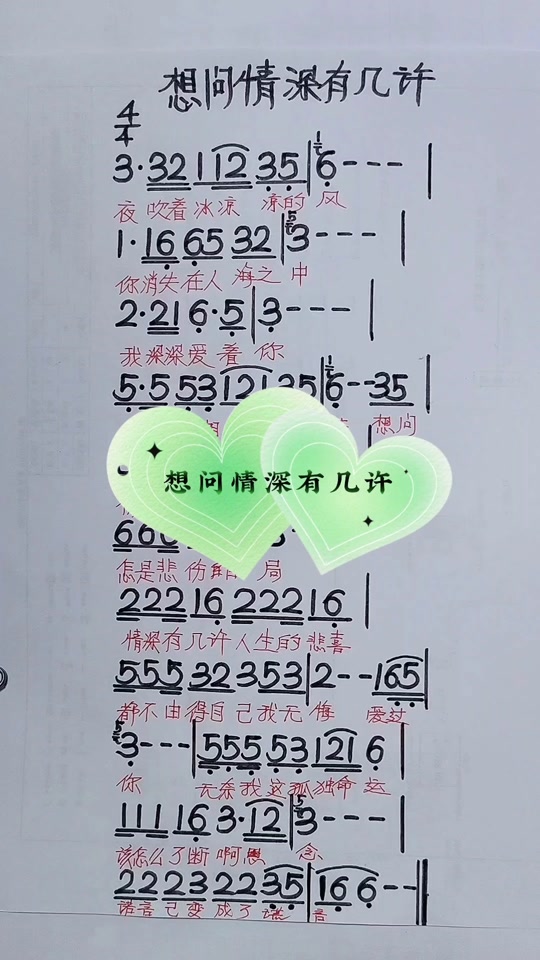 想问情深有几许
4/4
3·32 1 12 35|6---|
夜吹着冰凉 凉的风
1·16 65 32|3---|
你消失在人海之中
2·21 6·5|3---|
我深深爱着你
5·5 53 121 35|6--35|
想问
想问情深有几许
怎是悲伤 局
222 16 222 16|
情深有几许人生的悲喜
555 32 3 53|2--165|
都不由得自己我无悔 爱过
3---|555 53 121 6|
你 无奈我这孤独命运
111 16 3·12|3---|
该怎么了断啊思念
2223 22 35|16 6--‖
诺言已变成了谎言